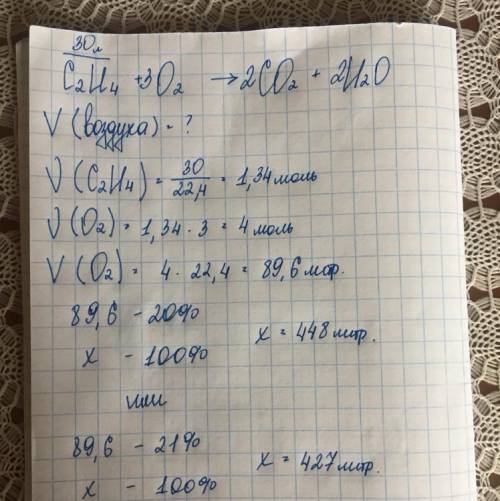 30л
C₂H₄ + 3O₂ → 2CO₂ + 2H₂O
V (воздуха) = ?
ν (C₂H₄) = 30/22,4 = 1,34 моль
ν (O₂) = 1,34 · 3 = 4 моль
V (O₂) = 4 · 22,4 = 89,6 литр.
89,6 – 20%
x – 100%
x = 448 литр.
или
89,6 – 21%
x – 100%
x = 427 литр.